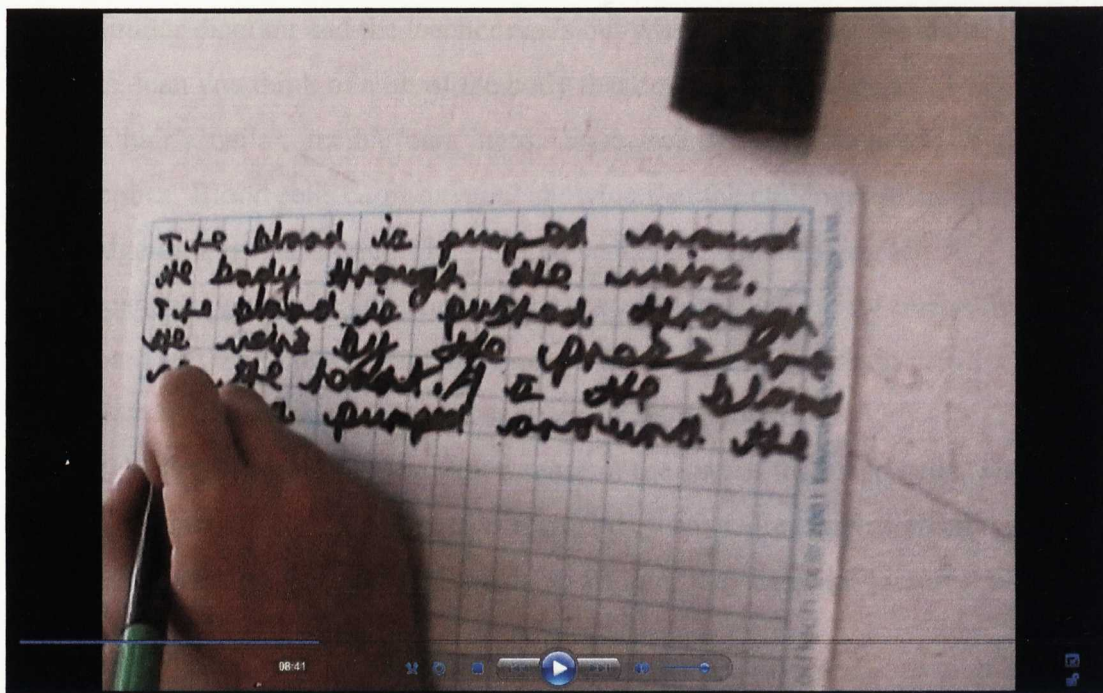 The blood is pumped around
the body through the veins.
The blood is pushed through
the veins by the pressure
the heart. A the blood
pumped around the
08:41